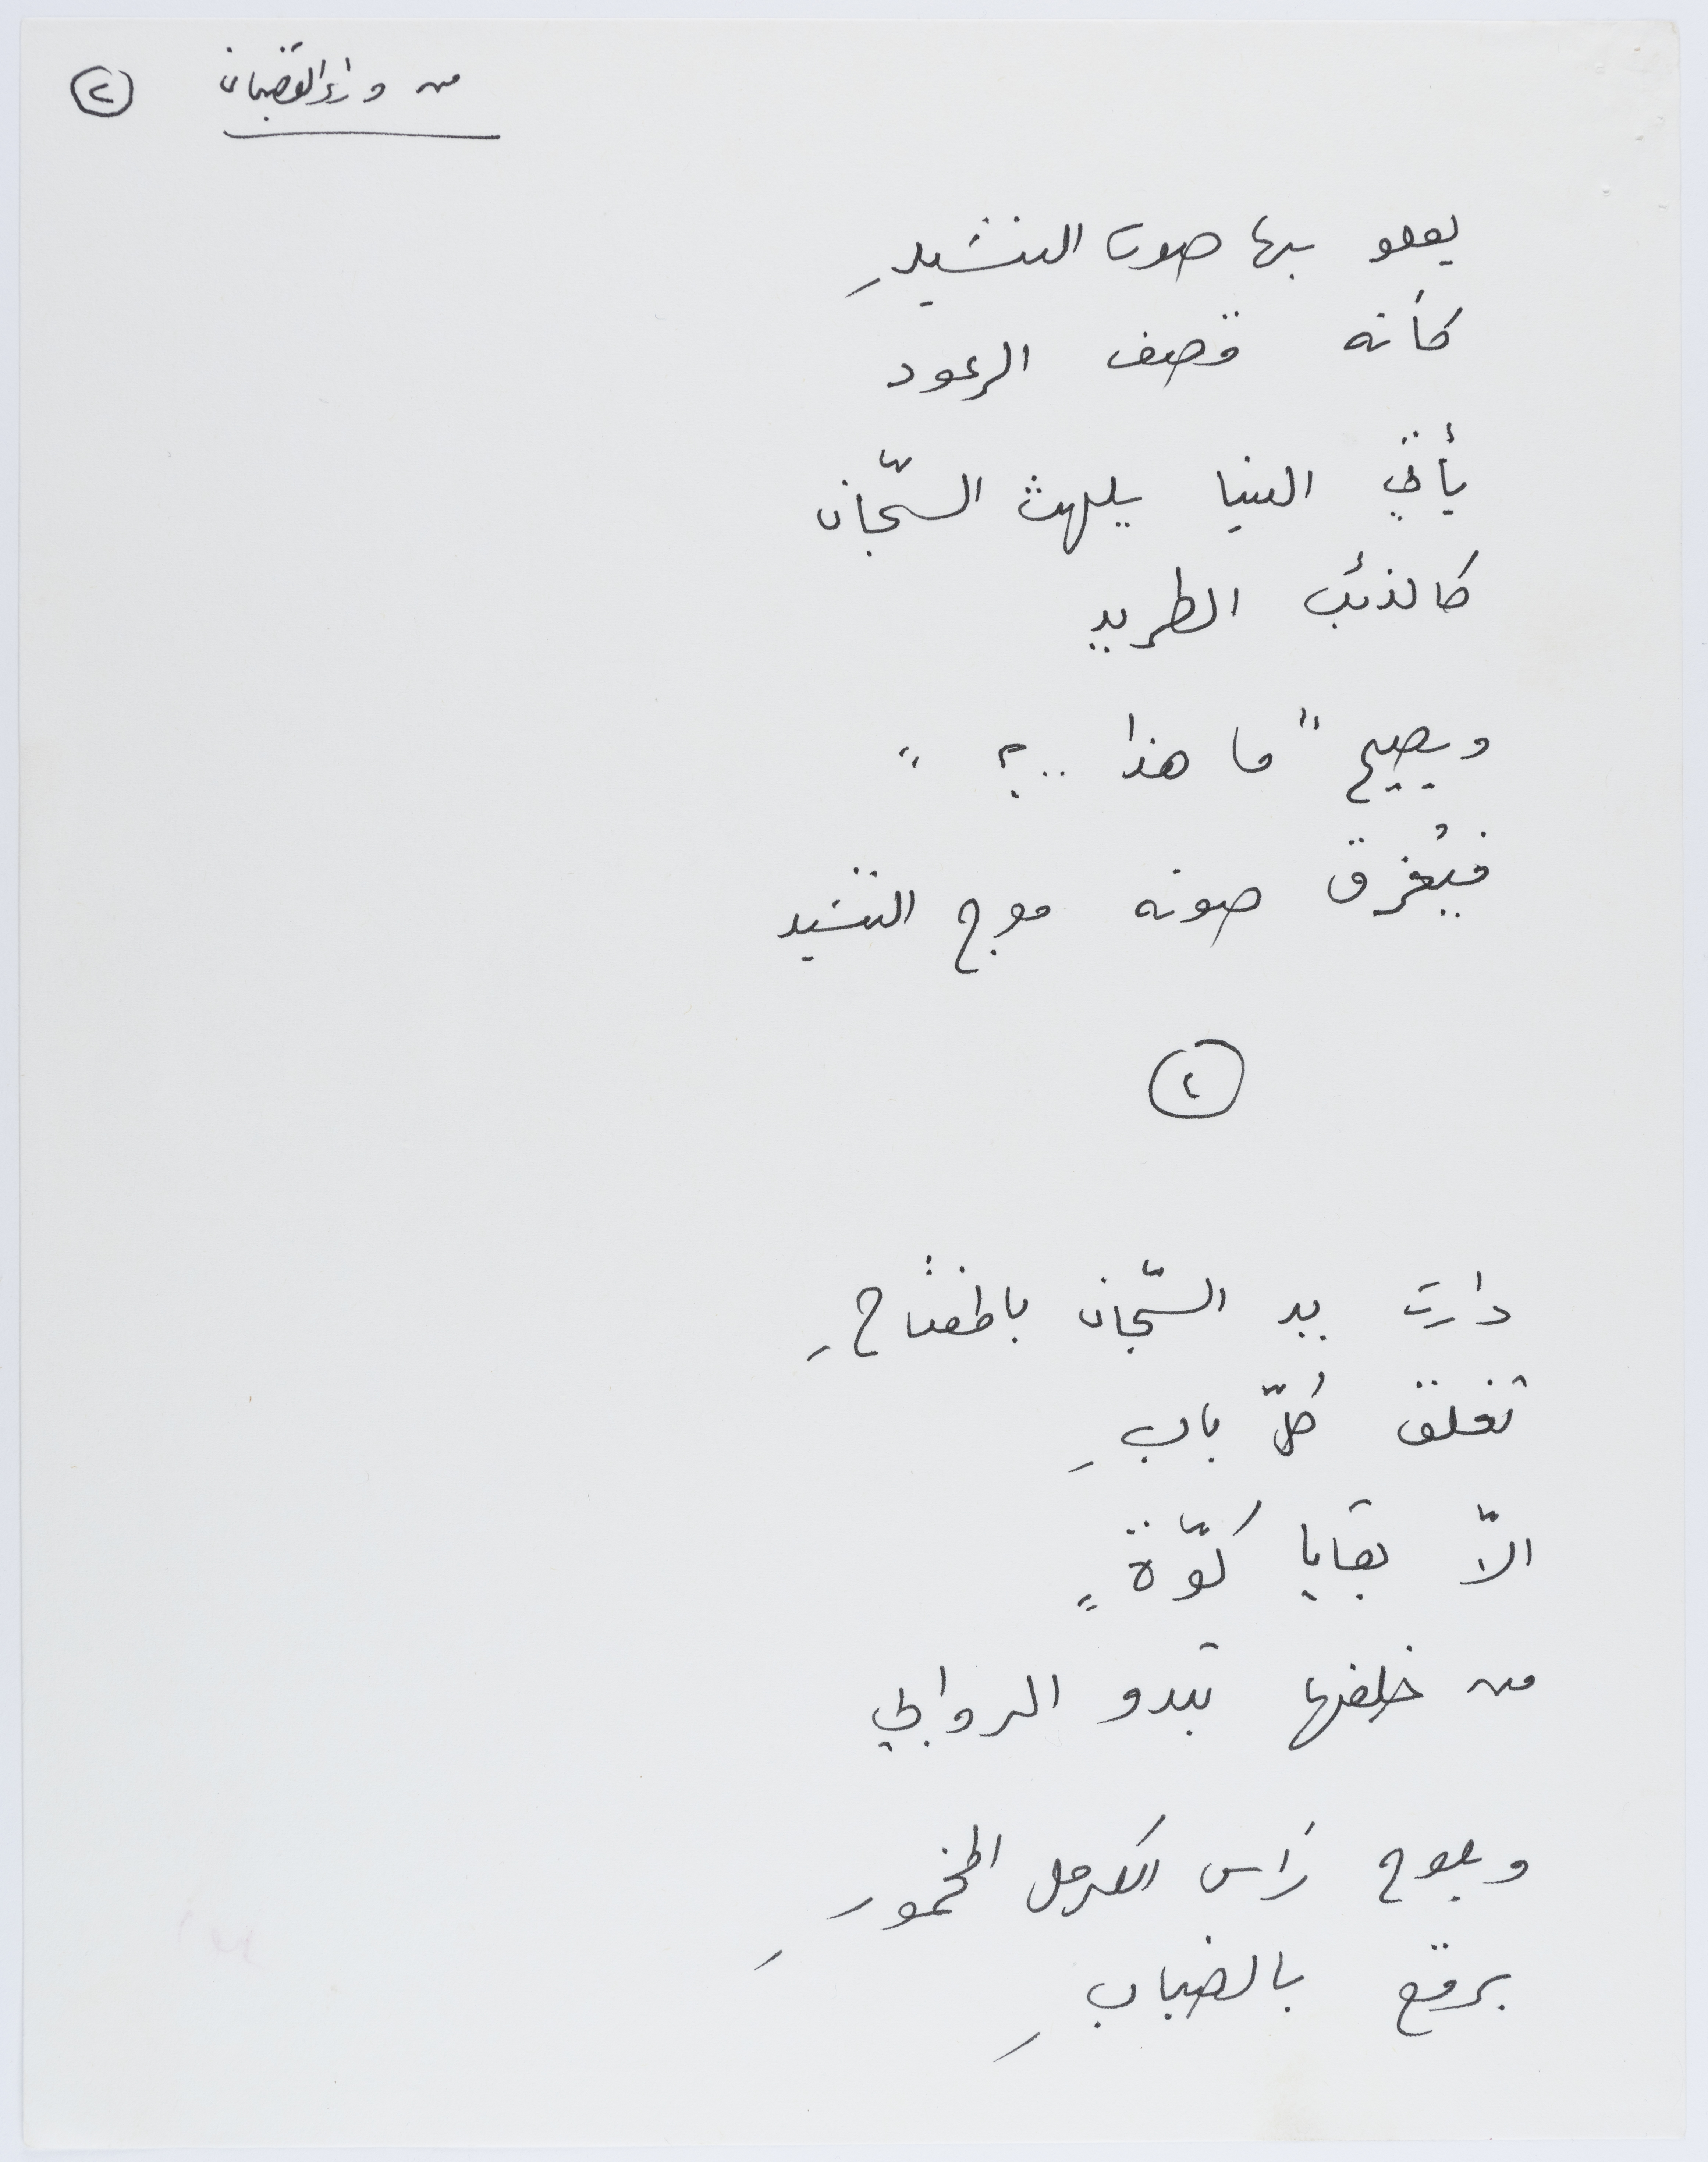 من وراء القضبان ②
يعلو بها صوت النشيدِ
كأنه قصف الرعود
يأتي الينا يلهث السّجّان
كالذئب الطريد
ويصيح "ما هذا ..؟"
فيُغرق صوته موج النشيد
②
دارت يد السّجّان بالمفتاحِ
تغلق كُلّ بابِ
الاّ بقايا كوّةٍ
من خلفها تبدو الروابي
ويلوح رَاس الكرمل المخمورِ
برقع بالضبابِ